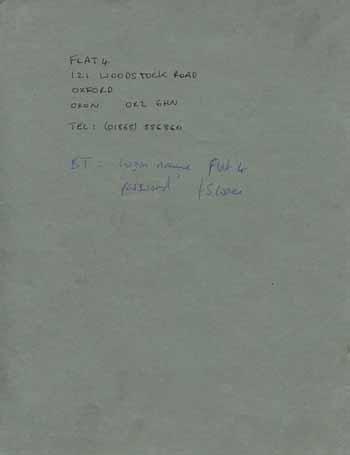 FLAT 4
121 WOODSTOCK ROAD
OXFORD
OXON OX2 6HN
TEL: (01865) 556860
BT: logon name Flat 4
password